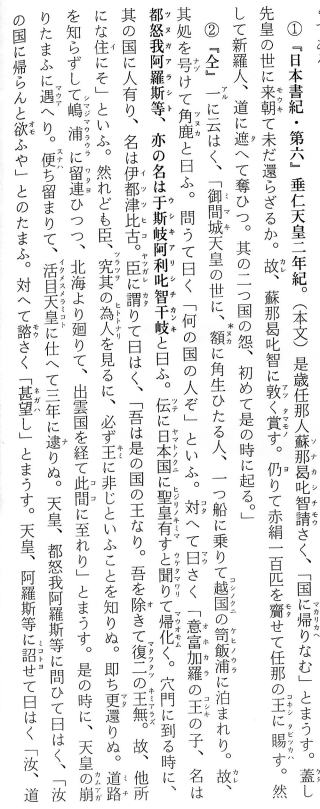 ① 『日本書紀・第六』垂仁天皇二年紀。（本文）是歳任那人蘇那曷叱智請さく、「国に帰りなむ」とまうす。蓋し
先皇の世に来朝て未だ還らざるか。故、蘇那曷叱智に敦く賞す。仍りて赤絹一百匹を齎せて任那の王に賜す。然
して新羅人、道に遮へて奪ひつ。其の二つ国の怨、初めて是の時に起る。」
② 『仝』一に云はく、「御間城天皇の世に、額に角生ひたる人、一つ船に乗りて越国の笥飯浦に泊まれり。故、
其処を号けて角鹿と曰ふ。問うて曰く「何の国の人ぞ」といふ。対へて曰さく「意富加羅の王の子、名は
都怒我阿羅斯等、亦の名は于斯岐阿利叱智干岐と曰ふ。伝に日本国に聖皇有すと聞りて帰化く。穴門に到る時に、
其の国に人有り、名は伊都都比古。臣に謂りて曰はく、「吾は是の国の王なり。吾を除きて復二の王無。故、他所
にな住にそ」といふ。然れども臣、究其の為人を見るに、必ず王に非じといふことを知りぬ。即ち更還りぬ。道路
を知らずして嶋浦に留連ひつつ、北海より廻りて、出雲国を経て此間に至れり」とまうす。是の時に、天皇の崩
りたまふに遇へり。便ち留まりて、活目天皇に仕へて三年に逮りぬ。天皇、都怒我阿羅斯等に問ひて曰はく、「汝
の国に帰らんと欲ふや」とのたまふ。対へて諮さく「甚望し」とまうす。天皇、阿羅斯等に詔せて曰はく「汝、道